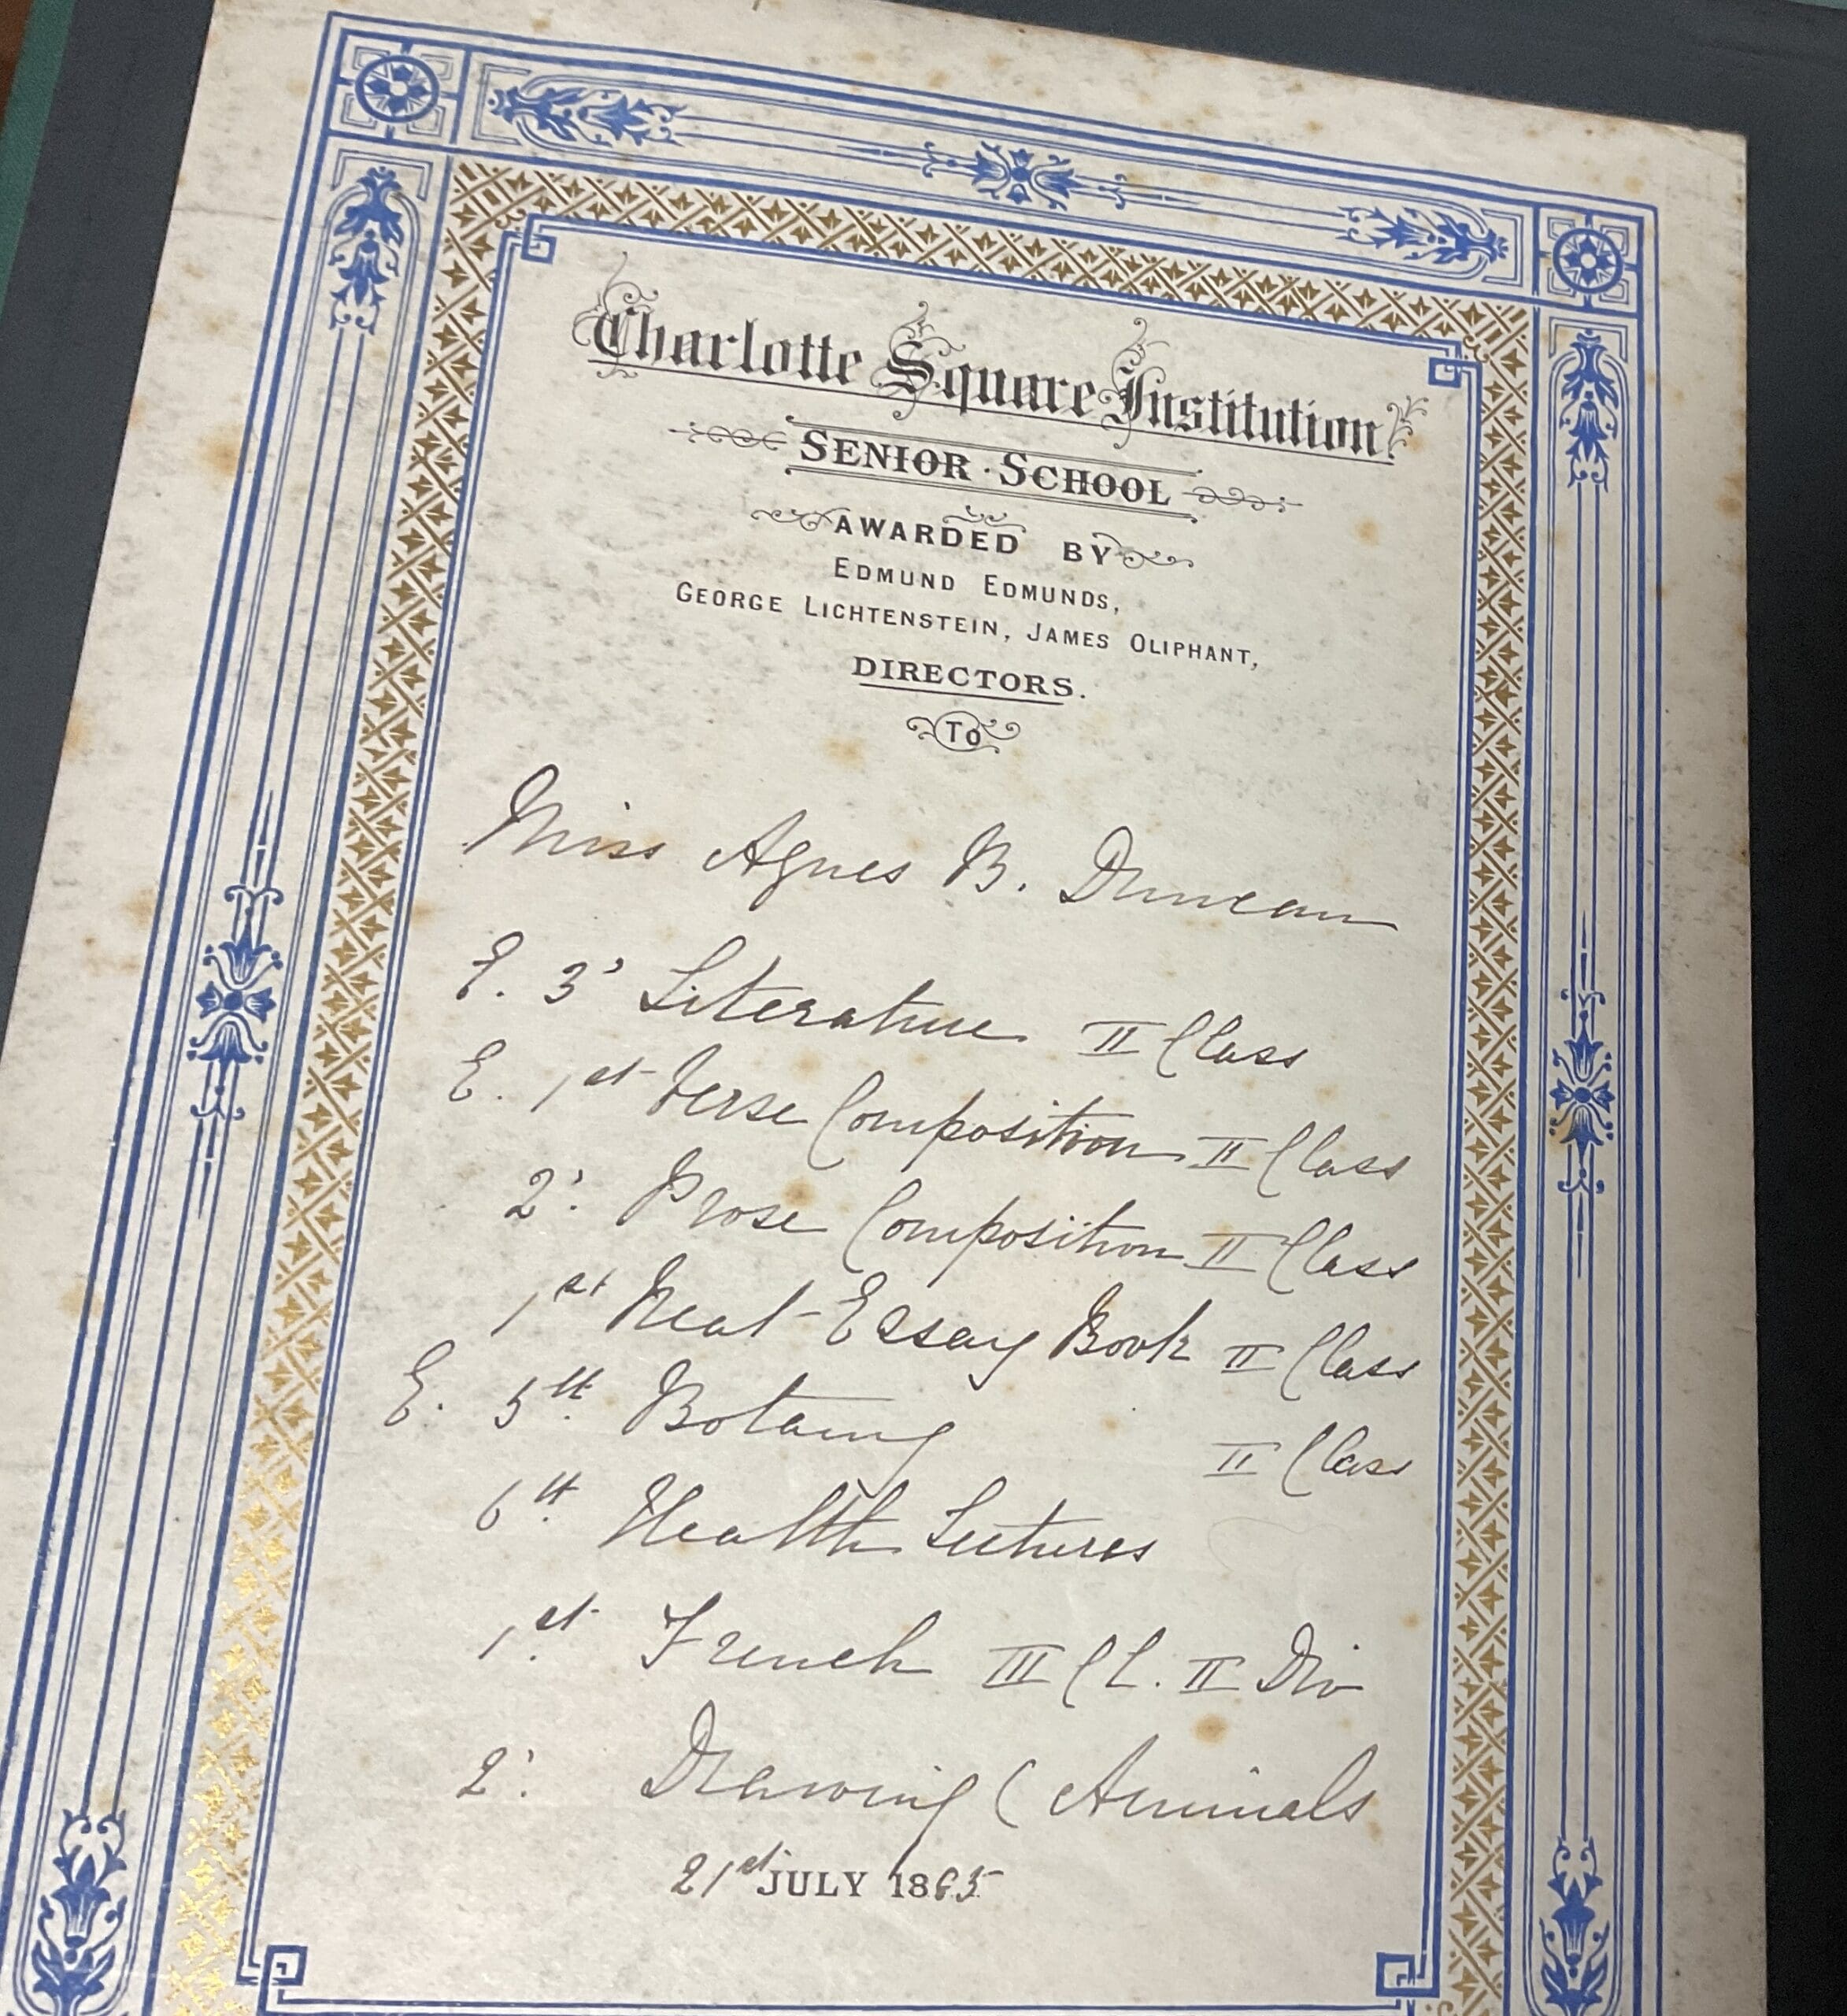 Charlotte Square Institution.
SENIOR · SCHOOL
AWARDED BY
EDMUND EDMUNDS,
GEORGE LICHTENSTEIN, JAMES OLIPHANT,
DIRECTORS.
TO
Miss Agnes B. Duncan
E. 3' Literature II Class
E. 1st Verse Composition II Class
2' Prose Composition II Class
1st Neat Essay Book II Class
E. 5th Botany II Class
6th Health Lectures
1st French III Cl. II Div
2' Drawing (Animals
21st JULY 1885